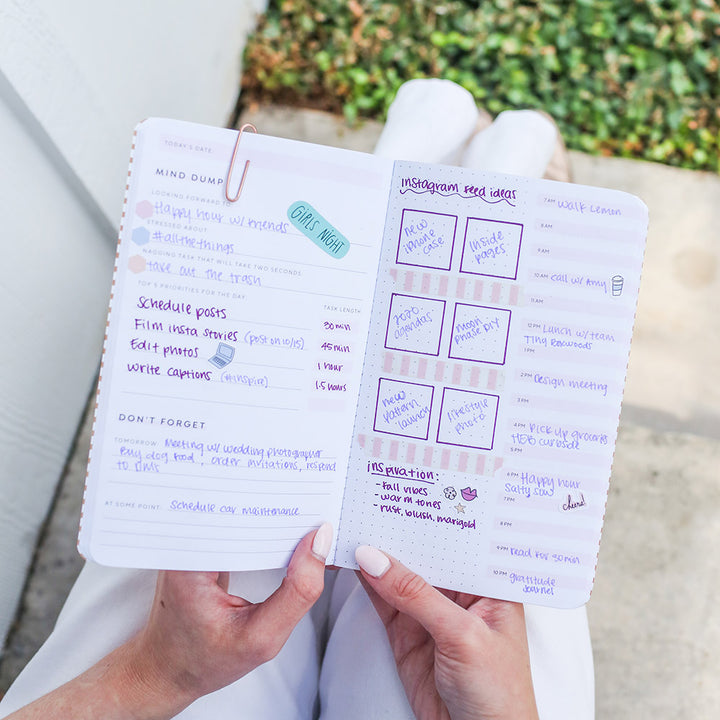 TODAY'S DATE
MIND DUMP
LOOKING FORWARD TO
Happy hour w/ friends
GIRLS NIGHT
STRESSED ABOUT
#allthethings
NAGGING TASK THAT WILL TAKE TWO SECONDS
take out the trash
TOP 5 PRIORITIES FOR THE DAY
TASK LENGTH
Schedule posts 30 min
Film insta stories (post on 10/15) 45 min
Edit photos 1 hour
Write captions (#inspire) 1.5 hours
DON'T FORGET
TOMORROW: Meeting w/ wedding photographer
Buy dog food, order invitations, respond
to DMs
AT SOME POINT: Schedule car maintenance
Instagram Feed ideas
new
iphone
case
Inside
pages
2020
agendas
Moon
phase DIY
new
pattern
launch
lifestyle
photo
inspiration:
- Fall vibes
- warm tones
- rust, blush, marigold
7AM Walk Lemon
8AM
9AM
10AM call w/ Amy
11AM
12PM Lunch w/ team
Tiny Boxwoods
1PM
2PM Design meeting
3PM
4PM Pick up groceries
HEB curbside
5PM
6PM Happy hour
Salty Sow
7PM
cheers!
8PM
9PM read for 30 min
10PM gratitude
journal